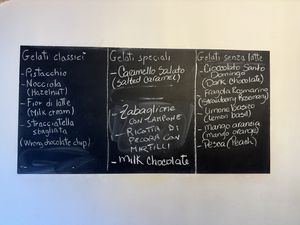 Gelati classici
- Pistacchio
- Nocciola
(Hazelnut)
- Fior di latte
(Milk cream)
- Stracciatella
sbagliata
(Wrong chocolate chip)
Gelati speciali
- Caramello Salato
(Salted Caramel)
- Zabaglione
CON LAMPONE
- RICOTTA DI
PECORA CON
MIRTILLI
- Milk Chocolate
Gelati senza latte
- Cioccolato Santo
Domingo
(Dark Chocolate)
- Fragola Rosmarino
(Strawberry Rosemary)
- Limone Basilico
(lemon basil)
- Mango arancia
(mango orange)
- Pesca (Peach)